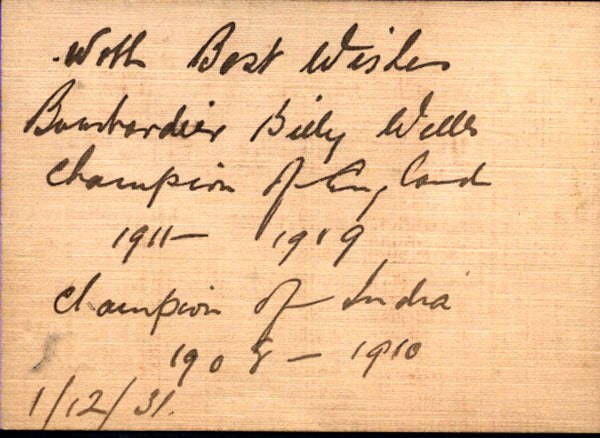 With Best Wishes
Bombardier Billy Wells
Champion of England
1911 - 1919
Champion of India
1908 - 1910
1/12/31.